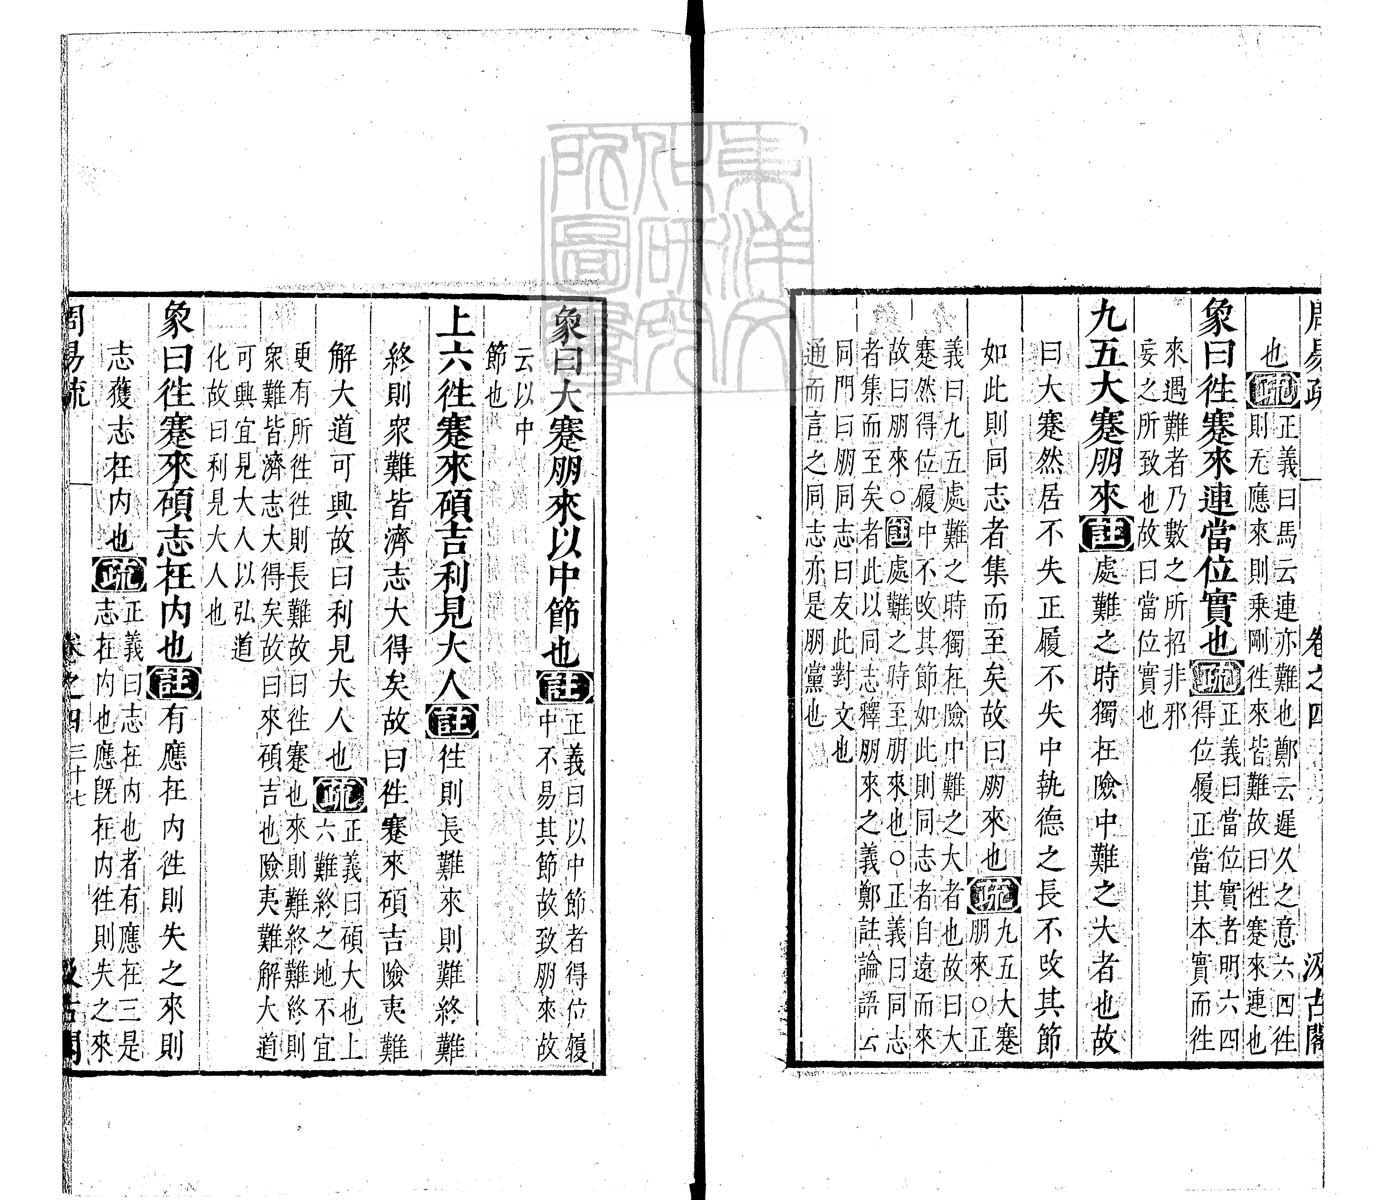 周易疏 卷之四 汲古閣
也疏正義曰馬云連亦難也鄭云遲久之意六四往
則无應來則乘剛往來皆難故曰往蹇來連也
象曰往蹇來連當位實也疏正義曰當位實者明六四
得位履正當其本實而往
來遇難者乃數之所招非邪
妄之所致也故曰當位實也
九五大蹇朋來註處難之時獨在險中難之大者也故
曰大蹇然居不失正履不失中執德之長不改其節
如此則同志者集而至矣故曰朋來也疏九五大蹇
朋來○正
義曰九五處難之時獨在險中難之大者也故曰大
蹇然得位履中不改其節如此則同志者自遠而來
故曰朋來○註處難之時至朋來也○正義曰同志
者集而至矣者此以同志釋朋來之義鄭註論語云
同門曰朋同志曰友此對文也
通而言之同志亦是朋黨也
象曰大蹇朋來以中節也註正義曰以中節者得位履
中不易其節故致朋來故
云以中
節也
上六往蹇來碩吉利見大人註往則長難來則難終難
終則衆難皆濟志大得矣故曰往蹇來碩吉險夷難
解大道可興故曰利見大人也疏正義曰碩大也上
六難終之地不宜
更有所往往則長難故曰往蹇也來則難終難終則
衆難皆濟志大得矣故曰來碩吉也險夷難解大道
可興宜見大人以弘道
化故曰利見大人也
象曰往蹇來碩志在内也註有應在内往則失之來則
志獲志在内也疏正義曰志在内也者有應在三是
志在内也應旣在内往則失之來
周易疏 卷之四 三十七 汲古閣
東洋文化研究所圖書